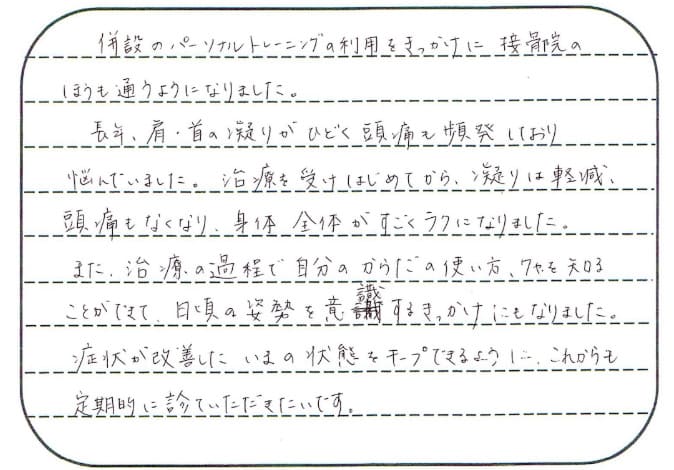 併設のパーソナルトレーニングの利用をきっかけに 接骨院の
ほうも通うようになりました。
長年、肩・首の凝りがひどく頭痛も頻発しており
悩んでいました。治療を受けはじめてから、凝りは軽減、
頭痛もなくなり、身体全体がすごくラクになりました。
また、治療の過程で自分のからだの使い方、クセを知る
ことができて、日頃の姿勢を意識するきっかけにもなりました。
症状が改善したいまの状態をキープできるように、これからも
定期的に診ていただきたいです。